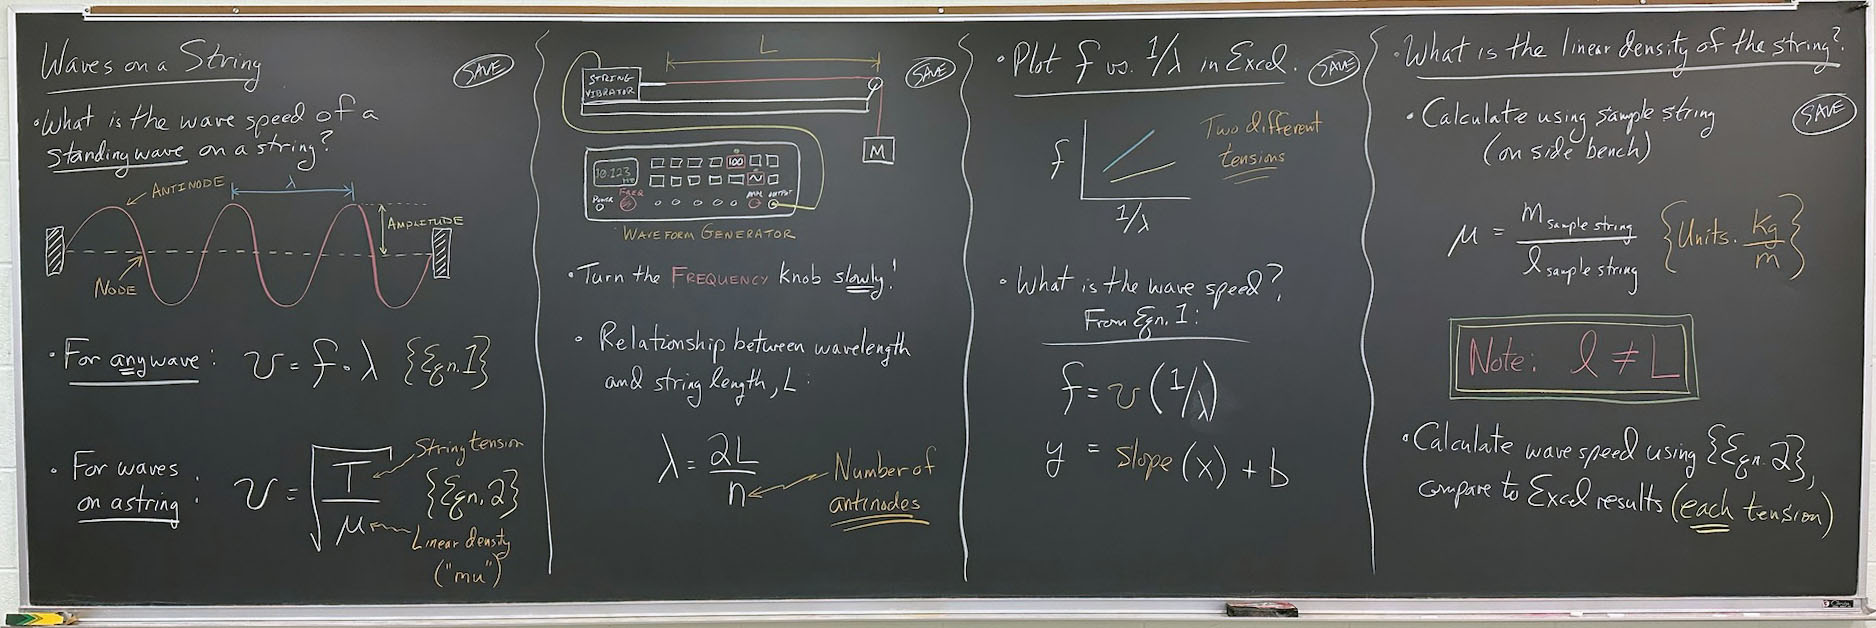 Waves on a String
SAVE
• What is the wave speed of a
standing wave on a string?
ANTINODE
λ
AMPLITUDE
NODE
• For any wave: v = f · λ {Eqn. 1}
• For waves
on a string:
v = √T/μ
String tension
{Eqn. 2}
Linear density
("mu")
L
STRING
VIBRATOR
SAVE
M
10.123
100
FREQ
POWER
OUTPUT
WAVEFORM GENERATOR
• Turn the FREQUENCY knob slowly!
• Relationship between wavelength
and string length, L:
λ = 2L/n
Number of
antinodes
• Plot f vs. 1/λ in Excel.
SAVE
f
1/λ
Two different
tensions
• What is the wave speed?
From Eqn. 1:
f = v (1/λ)
y = slope (x) + b
• What is the linear density of the string?
SAVE
• Calculate using sample string
(on side bench)
μ = m sample string / l sample string
{Units: kg/m}
Note: l ≠ L
• Calculate wave speed using {Eqn. 2},
compare to Excel results (each tension)